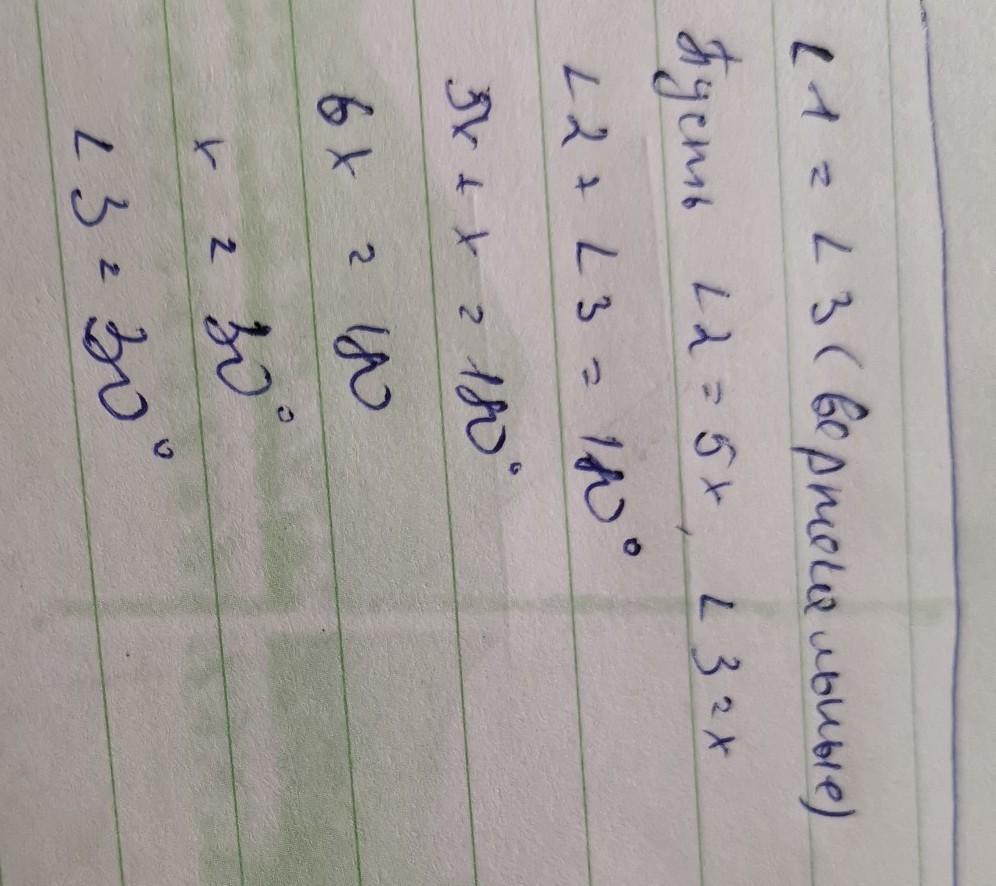 ∠1 = ∠3 (вертикальные)
Пусть ∠2 = 5x, ∠3 = x
∠2 + ∠3 = 180°
5x + x = 180°
6x = 180
x = 30°
∠3 = 30°